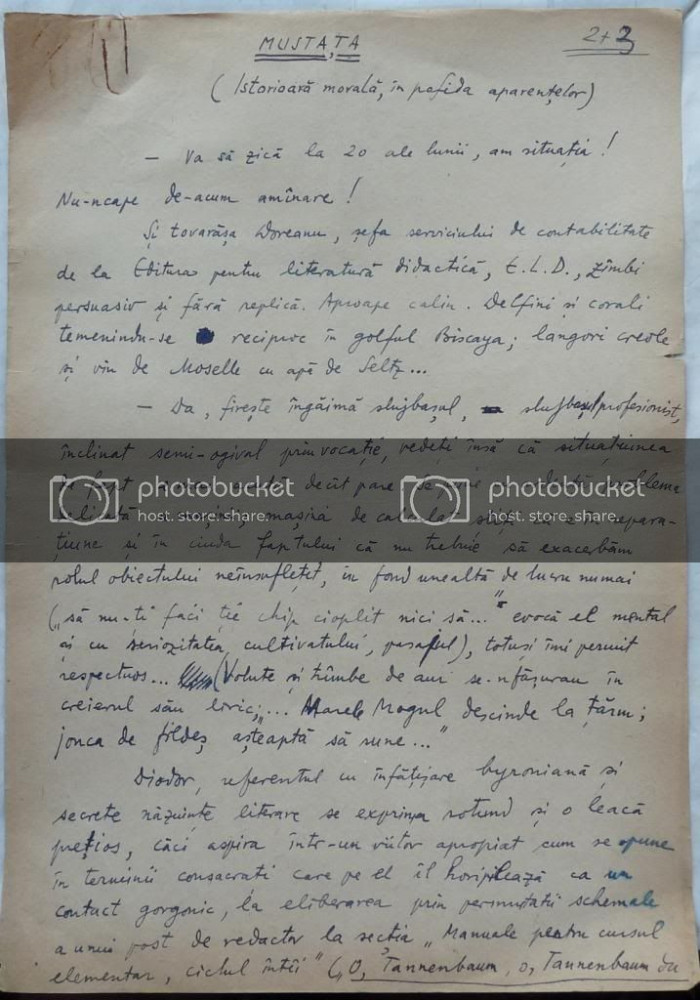 MUSTAȚA
2+3
(Istorioară morală, în pofida aparențelor)
— Va să zică la 20 ale lunii, am situația!
Nu-ncape de-acum amînare!
Și tovarășa Doreanu, șefa serviciului de contabilitate
de la Editura pentru literatură didactică, E.L.D., zîmbi
persuasiv și fără replică. Aproape calin. Delfini și corali
temenindu-se reciproc în golful Biscaya; langori creole
și vin de Moselle cu apă de Seltz...
— Da, firește îngăimă slujbașul, slujbașul profesionist,
înclinat semi-ogival prin vocație, vedeți însă că situațiunea
de fapt decît pare problema
delicată mașină de calculat repara-
țiune și în ciuda faptului că nu trebuie să exacerbăm
rolul obiectului neînsuflețit, în fond unealtă de lucru numai
(„să nu-ți faci ție chip cioplit nici să..." evocă el mental
și cu seriozitatea cultivatului, pasajul), totuși îmi permit
respectuos... (Volute și tumbe de aur se-nfășurau în
creierul său liric; „... Marele Mogul descinde la țărm;
jonca de fildeș așteaptă să sune..."
Diodor, referentul cu înfățișare byroniană și
secrete năzuințe literare se exprima rotund și o leacă
prețios, căci aspira într-un viitor apropiat cum se spune
în termenii consacrați care pe el îl horipilează ca un
contact gorgonic, la eliberarea prin permutații schemale
a unui post de redactor la secția „Manuale pentru cursul
elementar, ciclul întîi" („O, Tannenbaum, o, Tannenbaum du
photobucket
host. store. share.
photobucket
host. store. share.